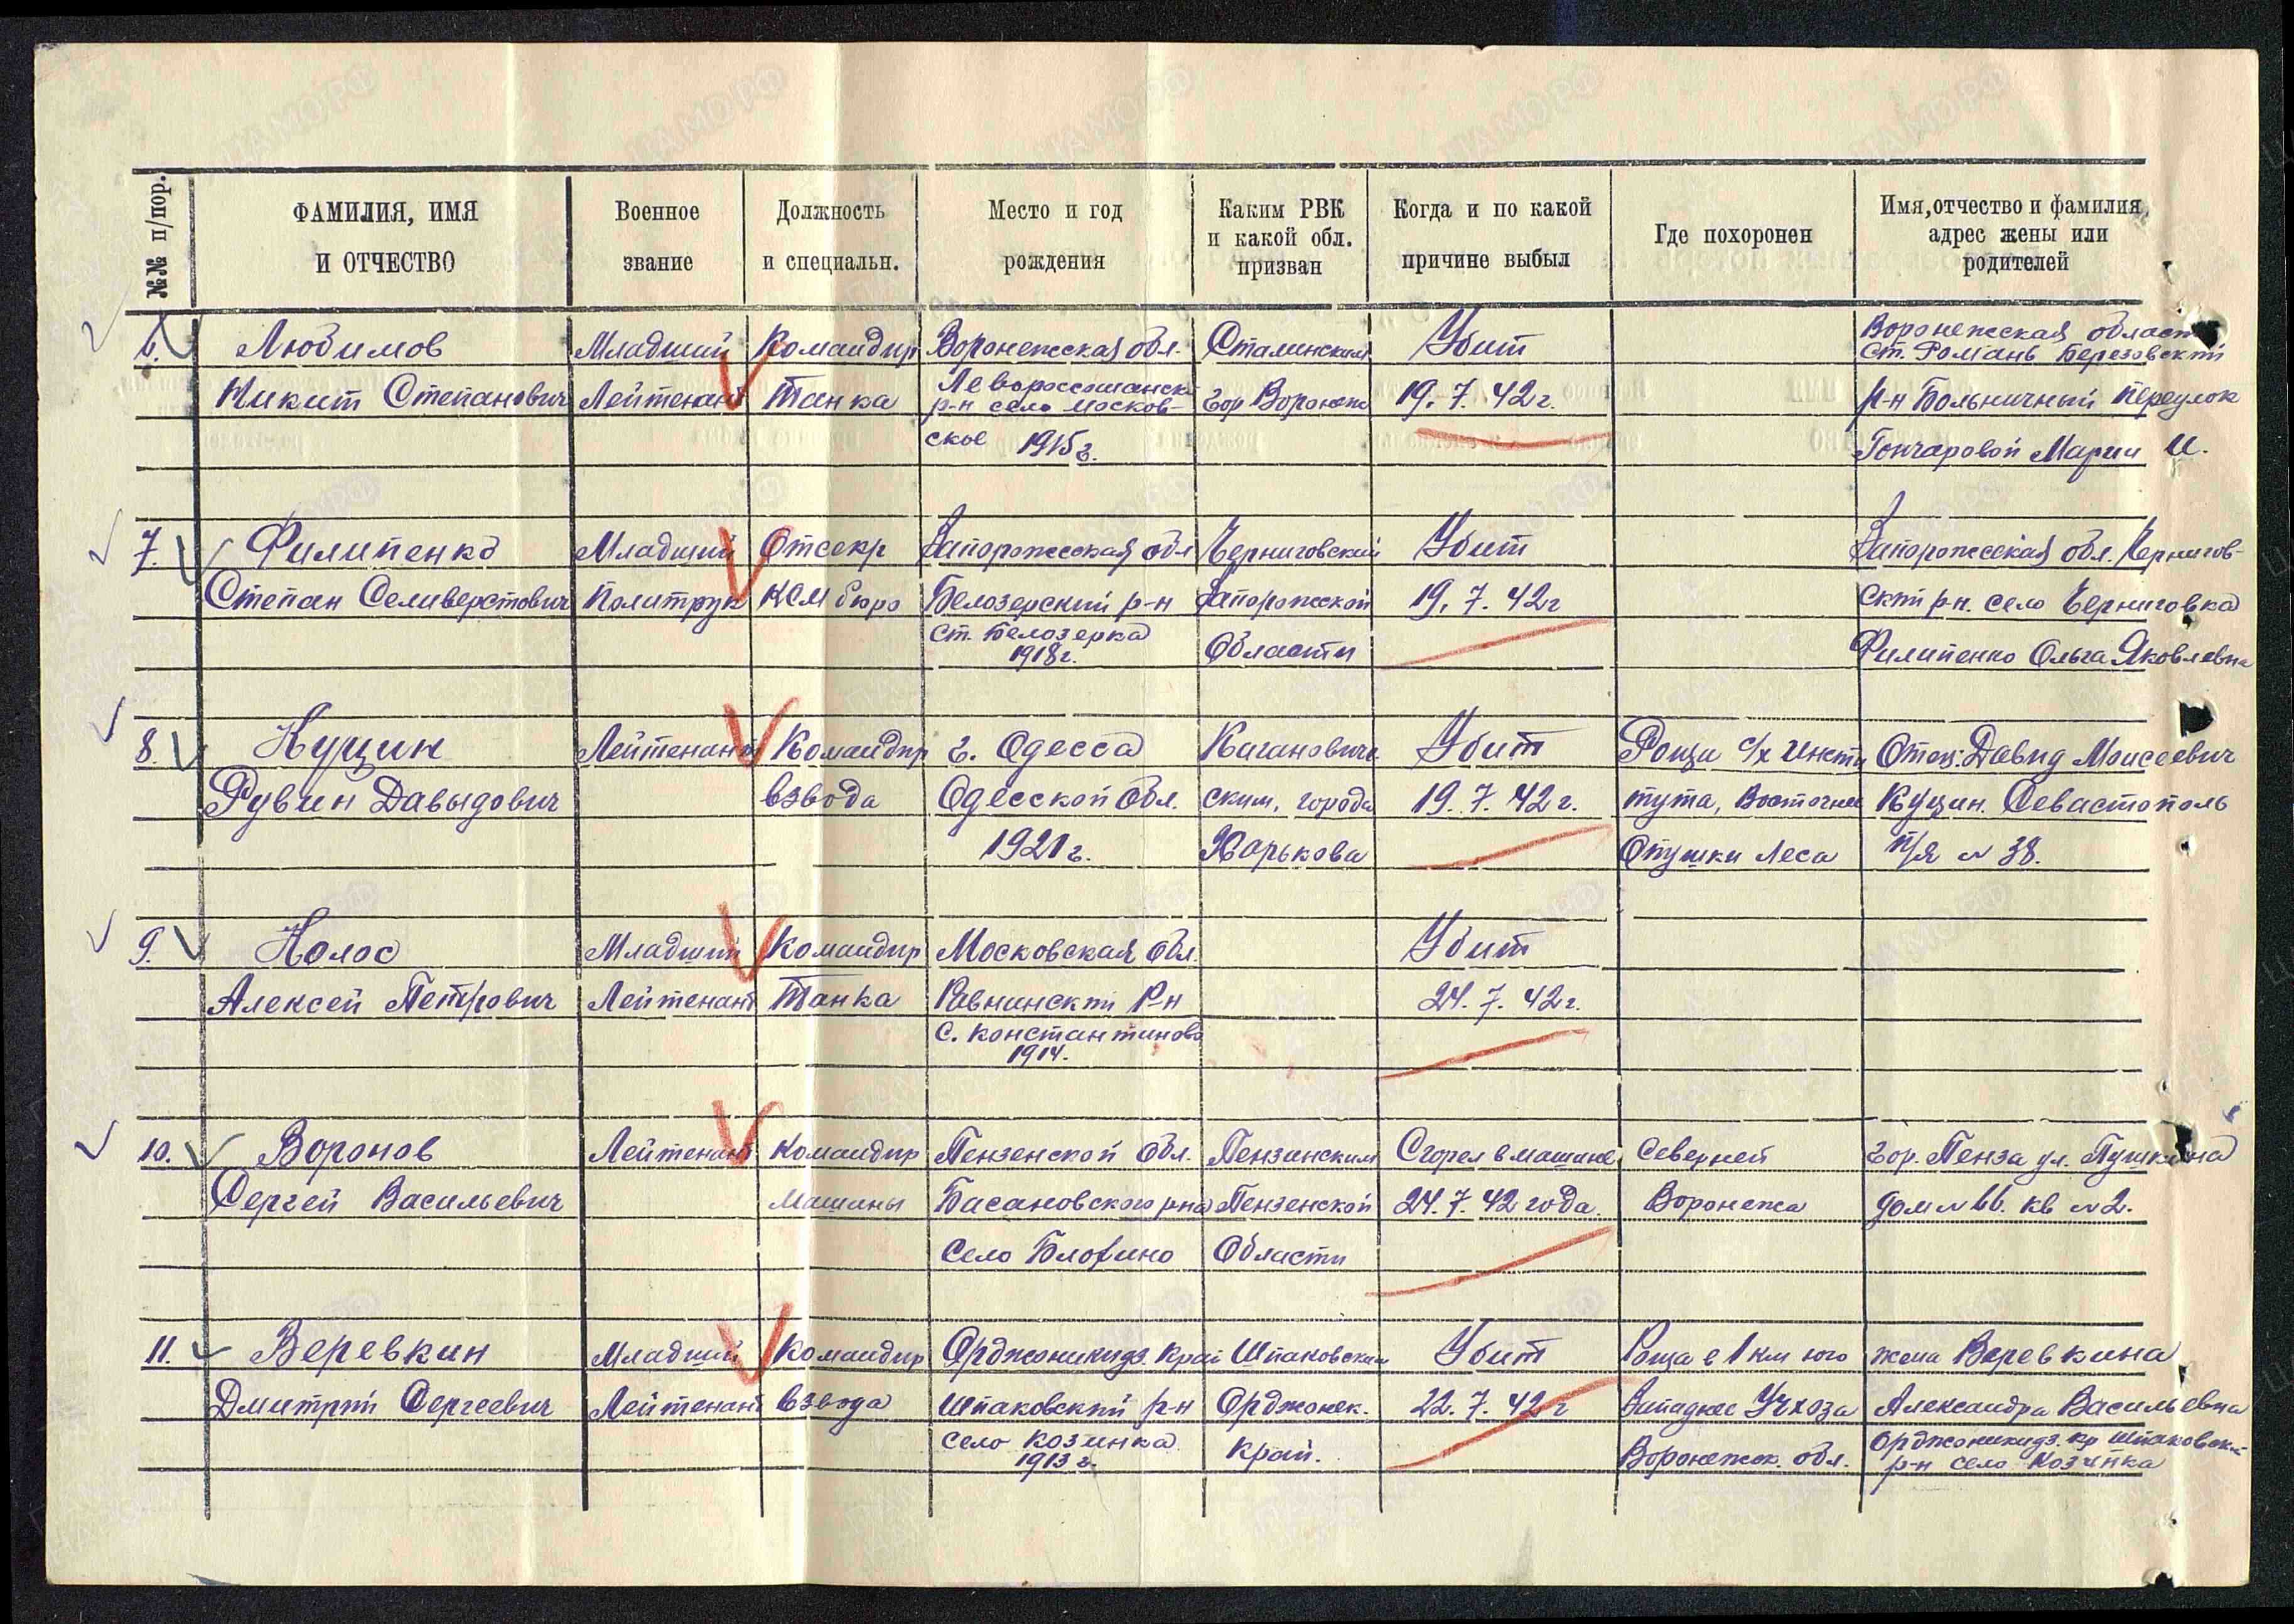 №№ п/пор.
ФАМИЛИЯ, ИМЯ И ОТЧЕСТВО
Военное звание
Должность и специальн.
Место и год рождения
Каким РВК и какой обл. призван
Когда и по какой причине выбыл
Где похоронен
Имя, отчество и фамилия, адрес жены или родителей
6. Любимов Младший Командир Воронежская обл. Сталинским Убит Воронежская област
ст. Романь Березовский
Никит Степанович Лейтенант Танка Левороссошанск гор Воронеж 19.7.42г. р-н Больничный переулок
р-н село Москов-
ское 1915г. Гончаровой Марии И.
7. Филипенко Младший Отсекр Запорожеская обл Черниговский Убит Запорожеская обл. Чернигов-
Степан Селиверстович Политрук КСМ бюро Белозерский р-н Запорожской 19.7.42г ский р-н. село Черниговка
ст. Белозерка Области Филипенко Ольга Яковлевна
1918г.
8. Куцин Лейтенант Командир г. Одесса Каганович Убит Роща с/х Инсти Отец: Давид Моисеевич
Рувин Давыдович взвода Одесской обл. ским, города 19.7.42г. тута, Восточнее Куцин. Севастополь
1921г. Харькова Опушки Леса п/я № 38.
9. Колос Младший Командир Московская обл. Убит
Алексей Петрович Лейтенант Танка Р-н 24.7.42г.
с. Константиново
1914.
10. Воронов Лейтенант Командир Пензенской обл. Пензенским Сгорел в машине Северней гор. Пенза ул. Пушкина
Сергей Васильевич Машины Басановского р-на Пензенской 24.7.42 года. Воронежа дом № кв № 2.
Село Области
11. Веревкин Младший Командир Орджоникидз. Край Шпаковским Убит Роща в 1 км юго жена Веревкина
Дмитрий Сергеевич Лейтенант взвода Шпаковский р-н Орджонек. 22.7.42г Западнее Учхоза Александра Васильевна
село Козинка край. Воронежск. обл. Орджоникидз. кр Шпаковский
1913г. р-н село Козинка
ЦАМО.РФ